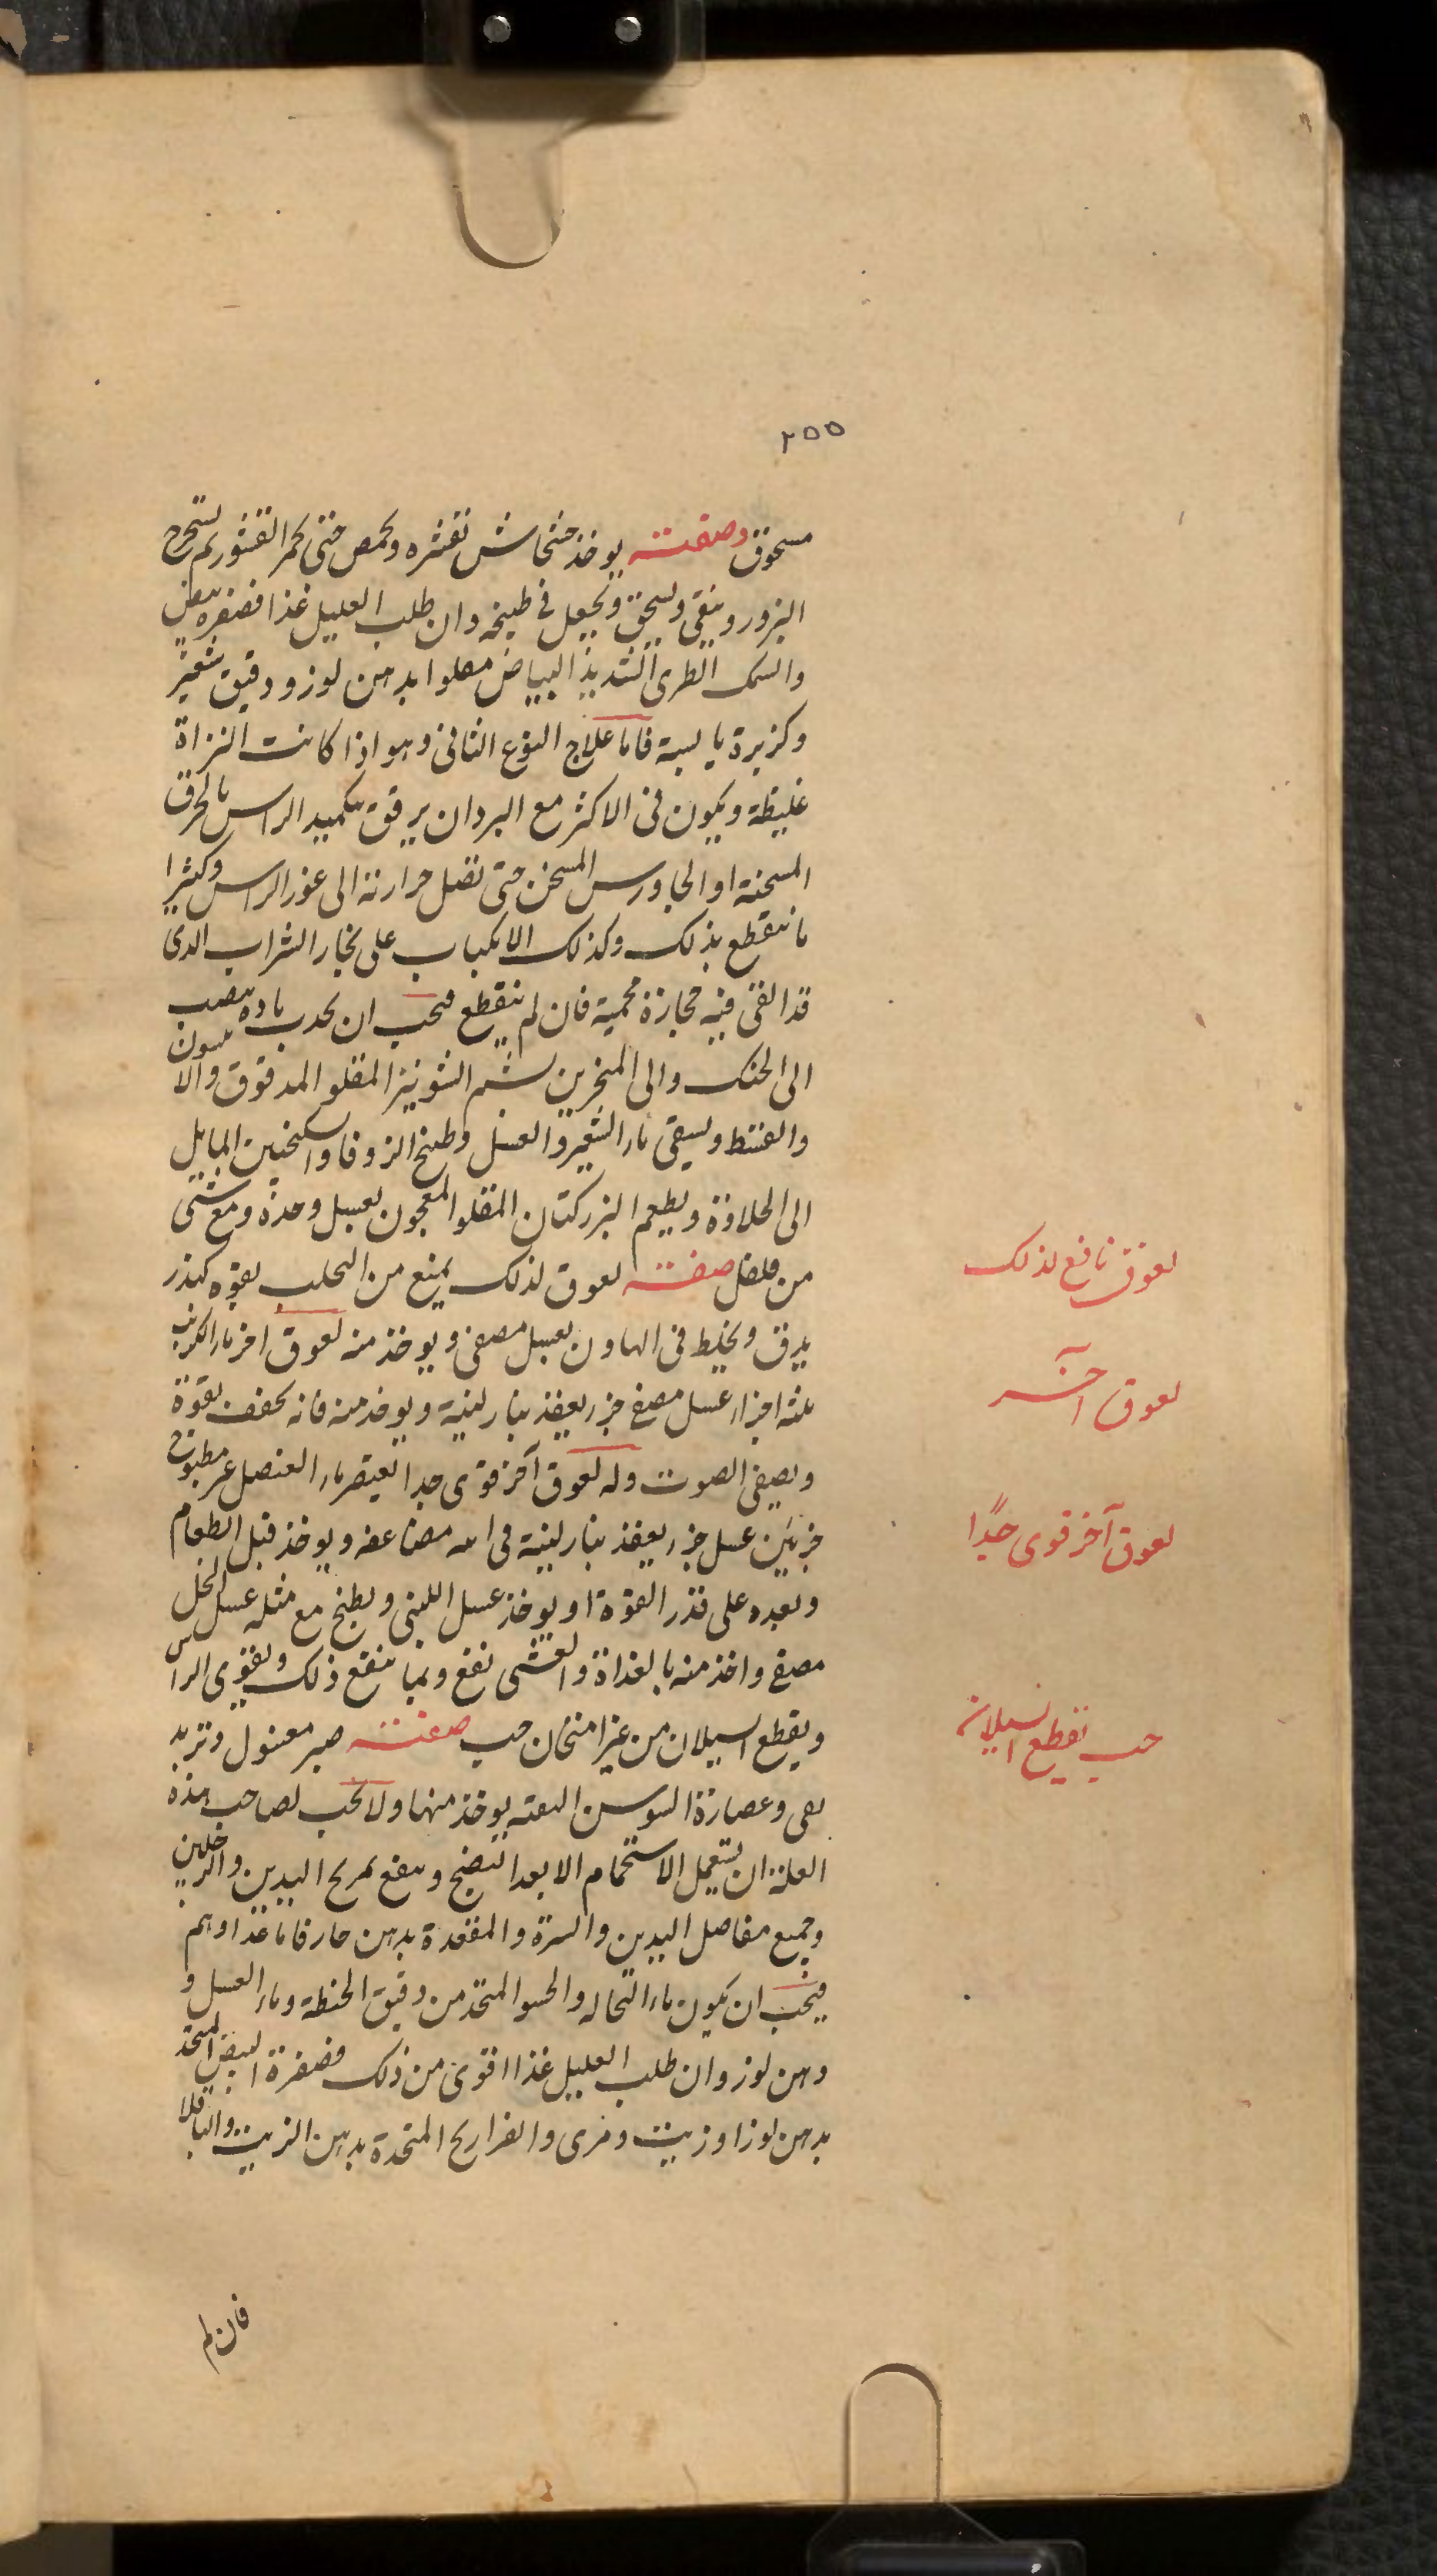 ٢٥٥
مسحوق وصفته يوخذ خشخاش بقشره ويحمص حتى يحمر القشور ثم يستخرج
البزور وينقى ويسحق ويجعل فى طبيخه وان طلب العليل غذا فصفره بيض
والسمك الطرى الشديد البياض مقلوا بدهن لوز ودقيق شعير
وكزبرة يابسة فاما علاج النوع الثانى وهو اذا كانت النزلة
غليظة ويكون فى الاكثر مع البرد ان يرقق بتكميد الراس بالخرق
المسخنة او الجاورس المسخن حتى تصل حرارته الى غور الراس وكثيرا
ما ينقطع بذلك وكذلك الانكباب على بخار الشراب الذى
قد القى فيه حجارة محمية فان لم ينقطع فيجب ان يجذب مادة تنصب
الى الحنك والى المنخرين بشم الشونيز المقلو المدقوق والانيسون
والقسط ويسقى ماء الشعير والعسل وطبخ الزوفا والسكنجبين المايل
الى الحلاوة ويطعم البزركتان المقلو المعجون بعسل وحده ومع شى
من فلفل صفته لعوق لذلك يمنع من التحلب بقوه كندر
يدق ويخلط فى الهاون بعسل مصفى ويوخذ منه لعوق اخر ماء الكرنب
ثلثه اجزاء عسل مصفى جزء يعقد بنار لينة ويوخذ منه فانه يجفف بقوة
ويصفى الصوت وله لعوق آخر قوى جدا يعتصر ماء العنصل غير مطبوخ
جزئين عسل جزء يعقد بنار لينة فى اناء مضاعفه ويوخذ قبل الطعام
وبعده على قدر القوة او يوخذ عسل اللبنى ويطبخ مع مثله عسل النحل
مصفى واخذ منه بالغداة والعشى نفع ومما ينفع ذلك ويقوى الراس
ويقطع السيلان من غير اسخان حب صفته صبر مغسول وتربد
نقى وعصارة السوسن البعته يوخذ منها ولا يجب لصاحب هذه
العلة ان يستعمل الاستحمام الا بعد النضج وينفع تمريخ اليدين والرجلين
وجميع مفاصل اليدين والسرة والمقعدة بدهن حار فاما غذاوهم
فيجب ان يكون ماء النخاله والحسو المتخذ من دقيق الحنطة وماء العسل و
دهن لوز وان طلب العليل غذا اقوى من ذلك فصفرة البيض المتخذ
بدهن لوز او زيت ومرى والفراريج المتخذة بدهن الزيت والباقلا
فان لم
لعوق نافع لذلك
لعوق آخر
لعوق آخر قوى جدًا
حب يقطع السيلان